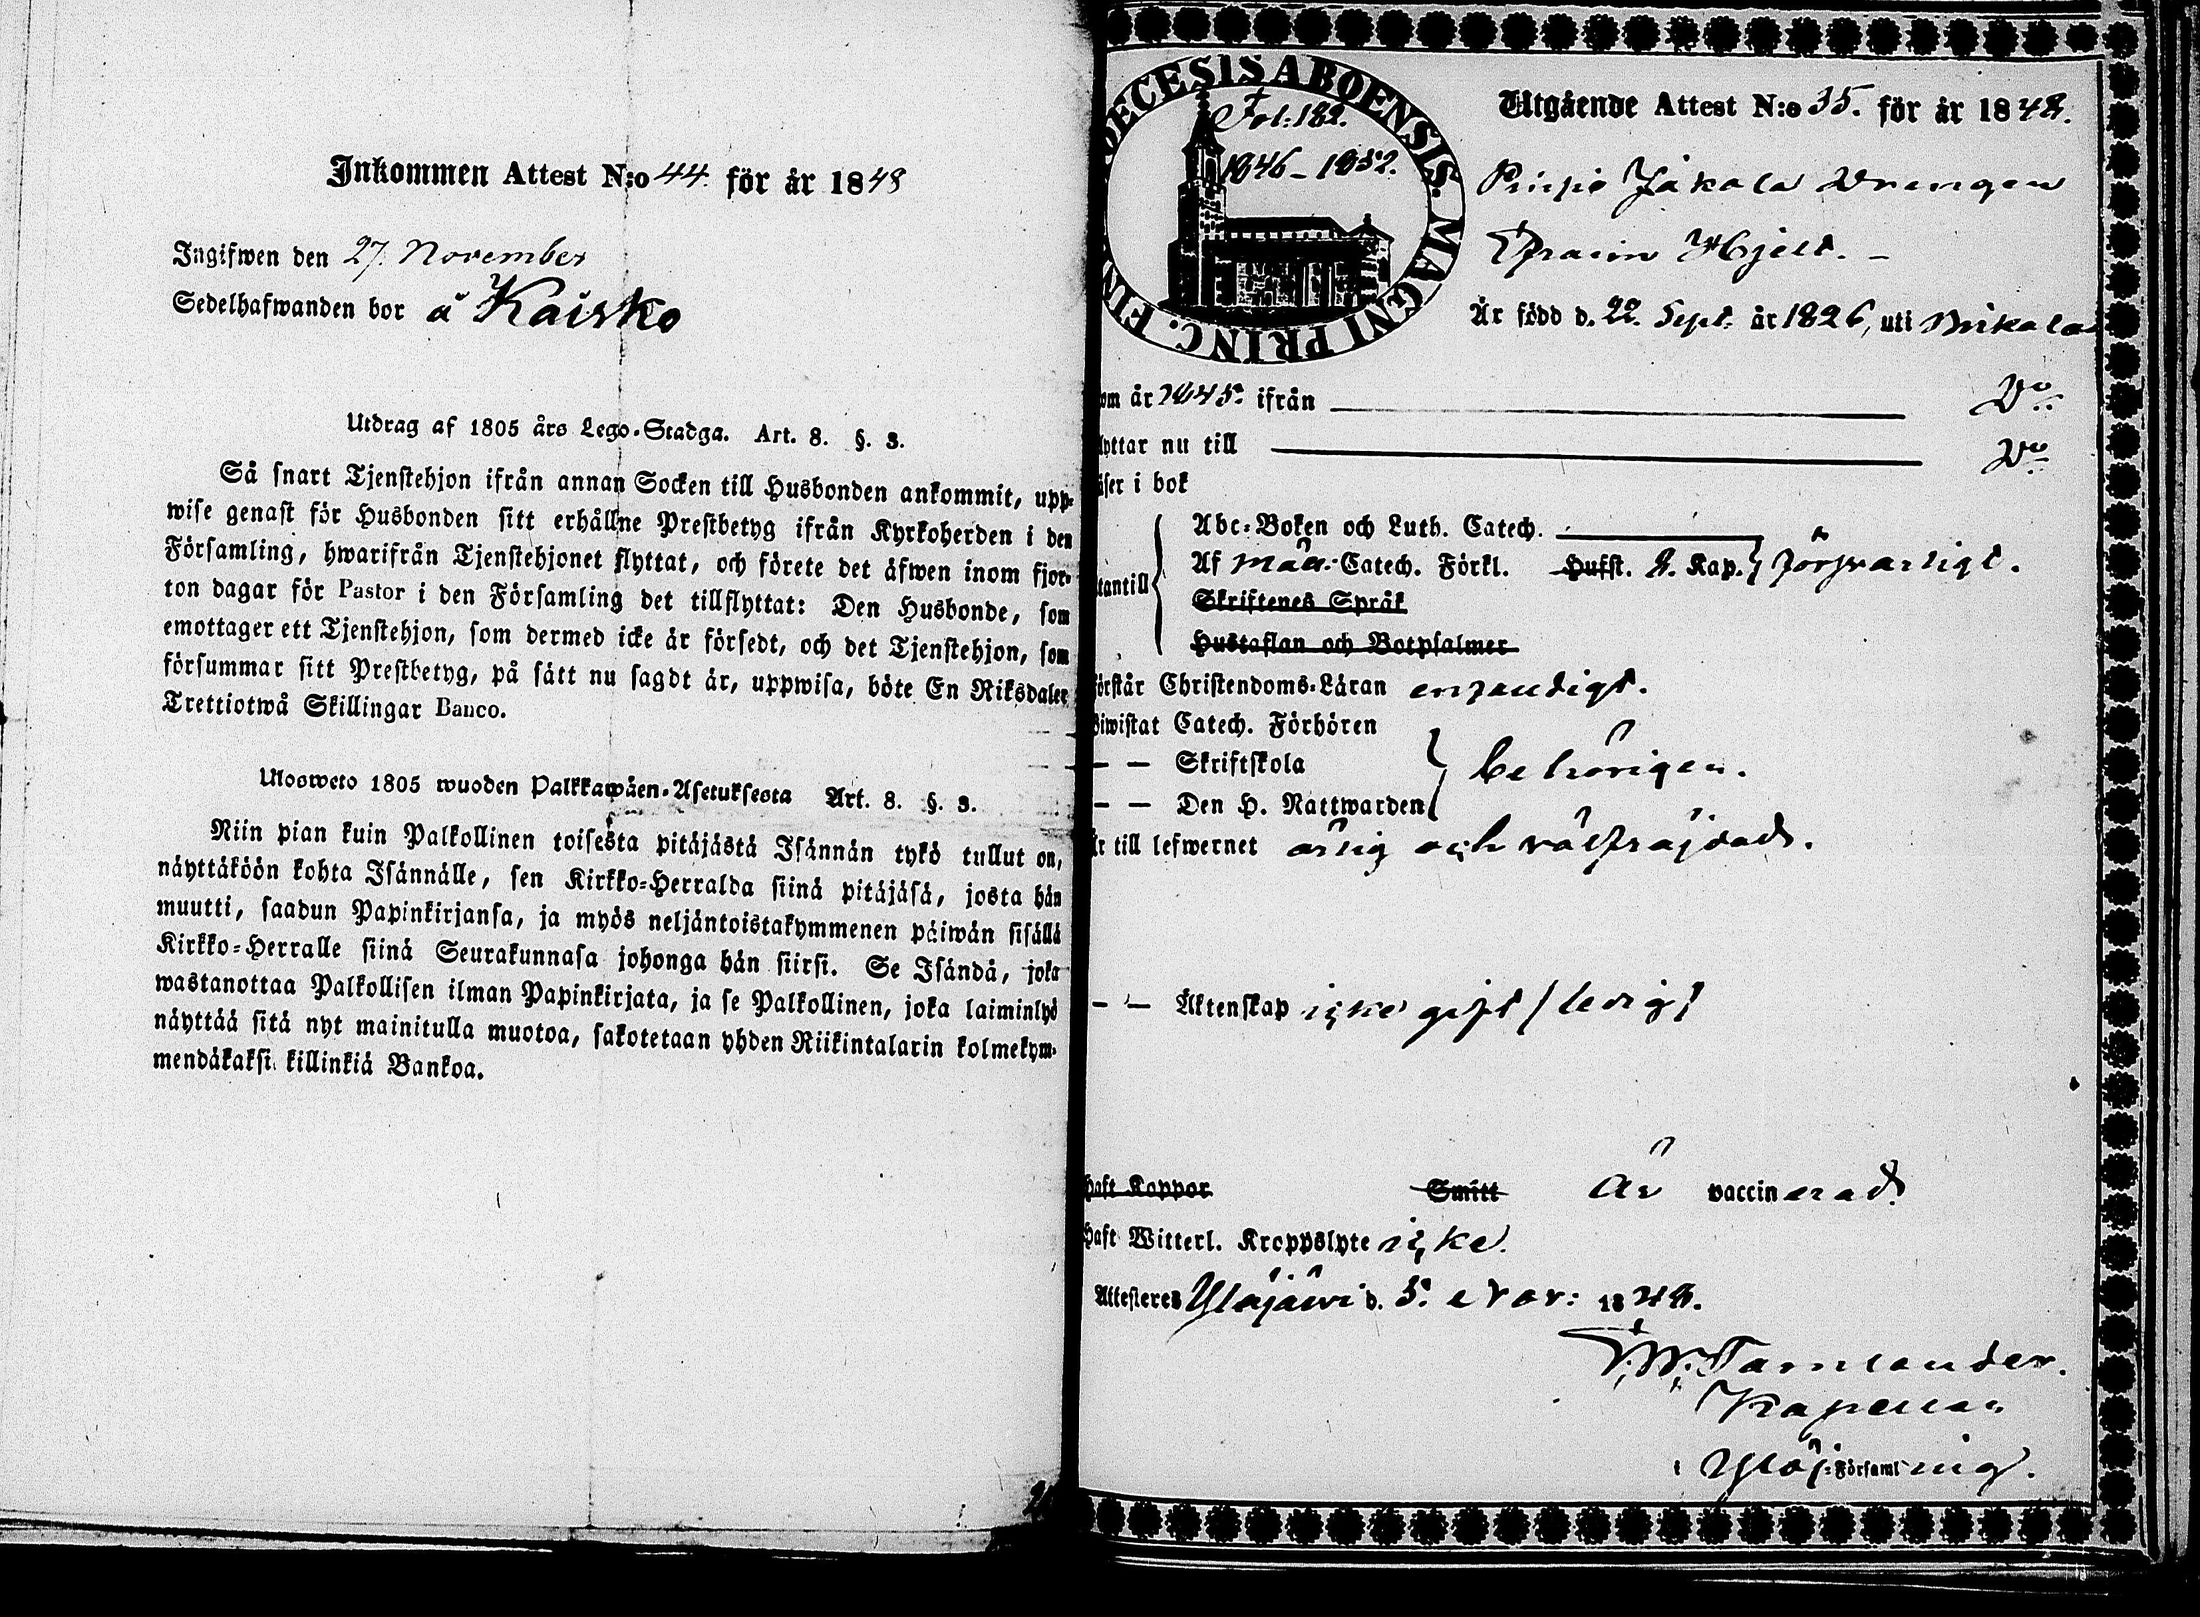 Inkommen Attest N:o 44. för år 1848
Ingifwen den 27. November
Sedelhafwanden bor å Kaisko
Utdrag af 1805 års Lego-Stadga. Art. 8. §. 3.
Så snart Tjenstehjon ifrån annan Socken till Husbonden ankommit, upp-
wise genast för Husbonden sitt erhållne Prestbetyg ifrån Kyrkoherden i den
Församling, hwarifrån Tjenstehjonet flyttat, och förete det äfwen inom fjor-
ton dagar för Pastor i den Församling det tillflyttat: Den Husbonde, som
emottager ett Tjenstehjon, som dermed icke är försedt, och det Tjenstehjon, som
försummar sitt Prestbetyg, på sätt nu sagdt är, uppwisa, böte En Riksdaler
Trettiotwå Skillingar Banco.
Ulosweto 1805 wuoden Palkkawäen-Asetuksesta Art. 8. §. 3.
Niin pian kuin Palkollinen toisesta pitäjästä Isännän tykö tullut on,
näyttäköön kohta Isännälle, sen Kirkko-Herralda siinä pitäjäsä, josta hän
muutti, saadun Papinkirjansa, ja myös neljäntoistakymmenen päiwän sisällä
Kirkko-Herralle siinä Seurakunnasa johonga hän siirsi. Se Isändä, joka
wastanottaa Palkollisen ilman Papinkirjata, ja se Palkollinen, joka laiminlyö
näyttää sitä nyt mainitulla muotoa, sakotetaan yhden Riikintalarin kolmekym-
mendäkaksi killinkiä Bankoa.
DECESIS ABOENSIS. MAGNI PRINC. FIN
Fol: 182.
1846–1852.
Utgående Attest N:o 35. för år 1848.
Jäkälä Drengen
Hjelt. –
Är född d. 22. Sept. år 1826, uti
om år 1845. ifrån Do
lyttar nu till Do
äser i bok
Abc-Boken och Luth. Catech.
tantill Af Catech. Förkl. Husst. 2. Kap. försvarligt.
Skriftenes Språk
Hustaflan och Botpsalmer
örstår Christendoms-Läran enfaldigt.
Biwistat Catech. Förhören
– – Skriftskola behörigen.
– – Den H. Nattwarden
Är till lefwernet ärlig och välfräjdad.
– – Äktenskap icke gift / ledig /
Haft Koppor Smitt Är vaccinerad.
Haft Witterl. Kroppslyte icke.
Attesteres Ylöjärwi d. 5. Nov: 1848.
Tamlander.
Kapellan
i Ylöj: Församling.